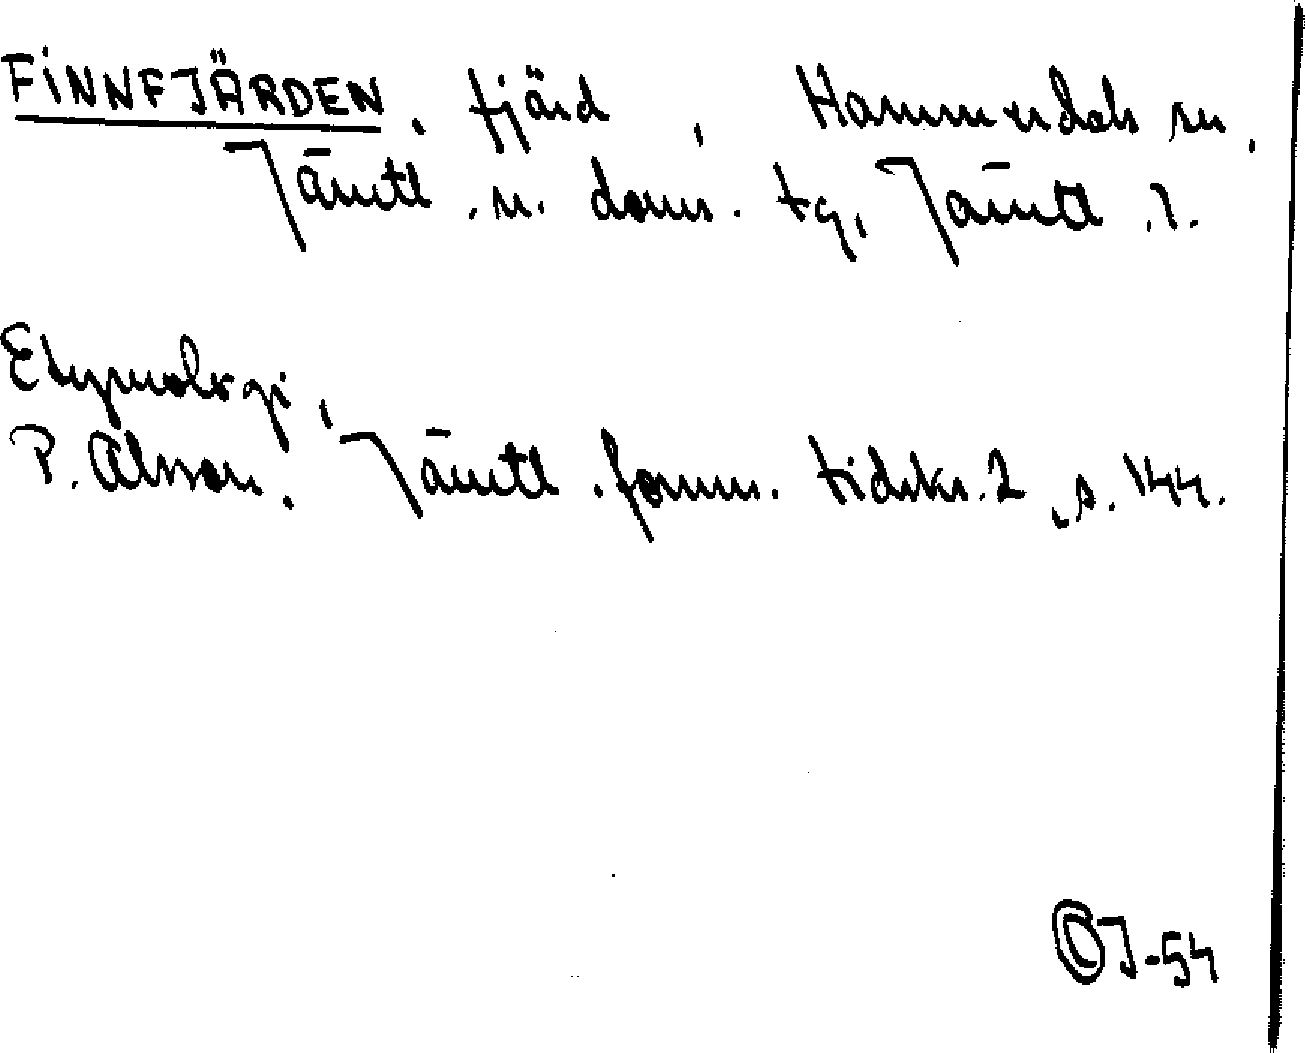 FINNFJÄRDEN, fjärd, Hammerdals sn,
Jämtl. n. doms. tg, Jämtl. l.
Etymologi,
P. Olsson, Jämtl. fornm. tidskr. 2, s. 144.
OJ-54